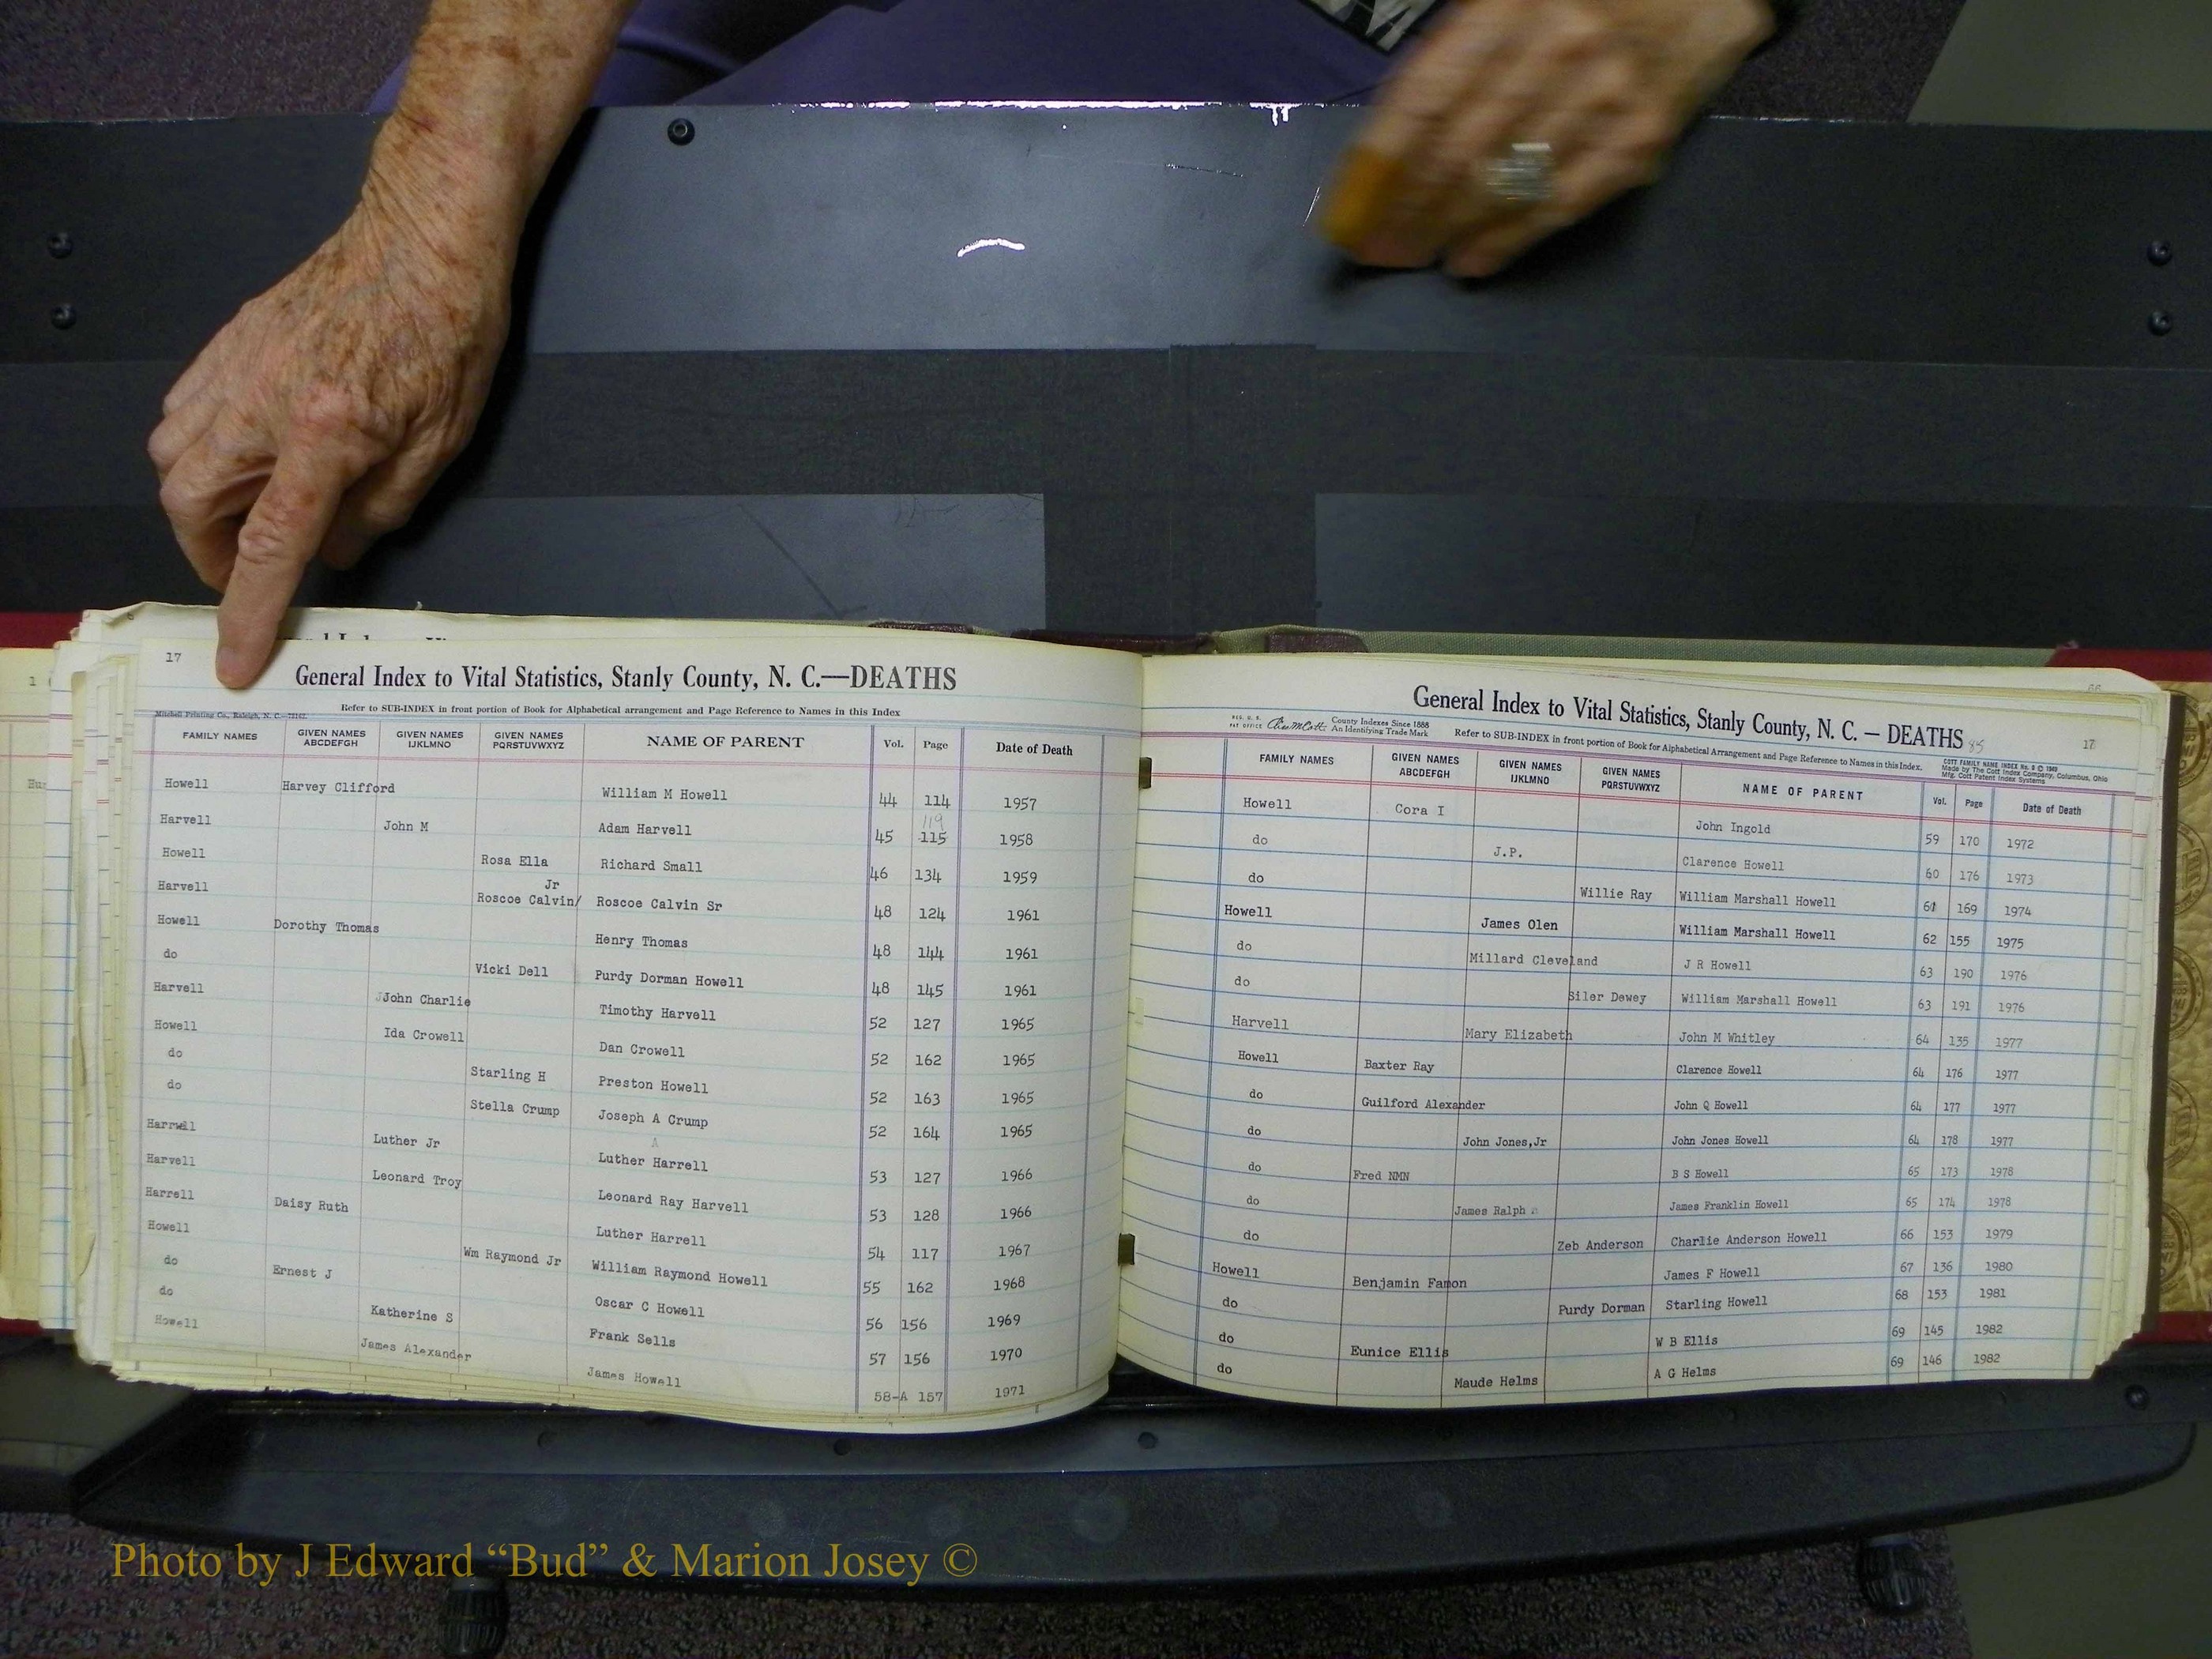 17
General Index to Vital Statistics, Stanly County, N. C.—DEATHS
Refer to SUB-INDEX in front portion of Book for Alphabetical arrangement and Page Reference to Names in this Index
Mitchell Printing Co., Raleigh, N. C.
FAMILY NAMES GIVEN NAMES ABCDEFGH GIVEN NAMES IJKLMNO GIVEN NAMES PQRSTUVWXYZ NAME OF PARENT Vol. Page Date of Death
Howell Harvey Clifford William M Howell 44 114 1957
119
Harvell John M Adam Harvell 45 115 1958
Howell Rosa Ella Richard Small 46 134 1959
Jr
Harvell Roscoe Calvin/ Roscoe Calvin Sr 48 124 1961
Howell Dorothy Thomas Henry Thomas 48 144 1961
do Vicki Dell Purdy Dorman Howell 48 145 1961
Harvell John Charlie Timothy Harvell 52 127 1965
Howell Ida Crowell Dan Crowell 52 162 1965
do Starling H Preston Howell 52 163 1965
do Stella Crump Joseph A Crump 52 164 1965
A
Luther Jr Luther Harrell 53 127 1966
Harvell Leonard Troy Leonard Ray Harvell 53 128 1966
Harrell Daisy Ruth Luther Harrell 54 117 1967
Howell Wm Raymond Jr William Raymond Howell 55 162 1968
do Ernest J Oscar C Howell 56 156 1969
do Katherine S Frank Sells 57 156 1970
Howell James Alexander James Howell 58-A 157 1971
General Index to Vital Statistics, Stanly County, N. C. — DEATHS 85
17
REG. U. S. PAT OFFICE
County Indexes Since 1888
An Identifying Trade Mark
Refer to SUB-INDEX in front portion of Book for Alphabetical Arrangement and Page Reference to Names in this Index.
COTT FAMILY NAME INDEX No. 5 © 1949
Made by The Cott Index Company, Columbus, Ohio
Mfg. Cott Patent Index Systems
FAMILY NAMES GIVEN NAMES ABCDEFGH GIVEN NAMES IJKLMNO GIVEN NAMES PQRSTUVWXYZ NAME OF PARENT Vol. Page Date of Death
Howell Cora I John Ingold 59 170 1972
do J.P. Clarence Howell 60 176 1973
do Willie Ray William Marshall Howell 61 169 1974
Howell James Olen William Marshall Howell 62 155 1975
do Millard Cleveland J R Howell 63 190 1976
do Siler Dewey William Marshall Howell 63 191 1976
Harvell Mary Elizabeth John M Whitley 64 135 1977
Howell Baxter Ray Clarence Howell 64 176 1977
do Guilford Alexander John Q Howell 64 177 1977
do John Jones,Jr John Jones Howell 64 178 1977
do Fred NMN B S Howell 65 173 1978
do James Ralph James Franklin Howell 65 174 1978
do Zeb Anderson Charlie Anderson Howell 66 153 1979
Howell Benjamin Famon James F Howell 67 136 1980
do Purdy Dorman Starling Howell 68 153 1981
do Eunice Ellis W B Ellis 69 145 1982
do Maude Helms A G Helms 69 146 1982
Photo by J Edward “Bud” & Marion Josey ©